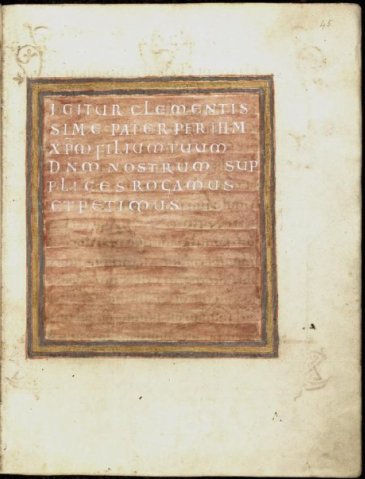 45
IGITUR CLEMENTIS
SIME PATER PER IHM
XPM FILIUM TUUM
DNM NOSTRUM SUP
PLICES ROGAMUS
ET PETIMUS